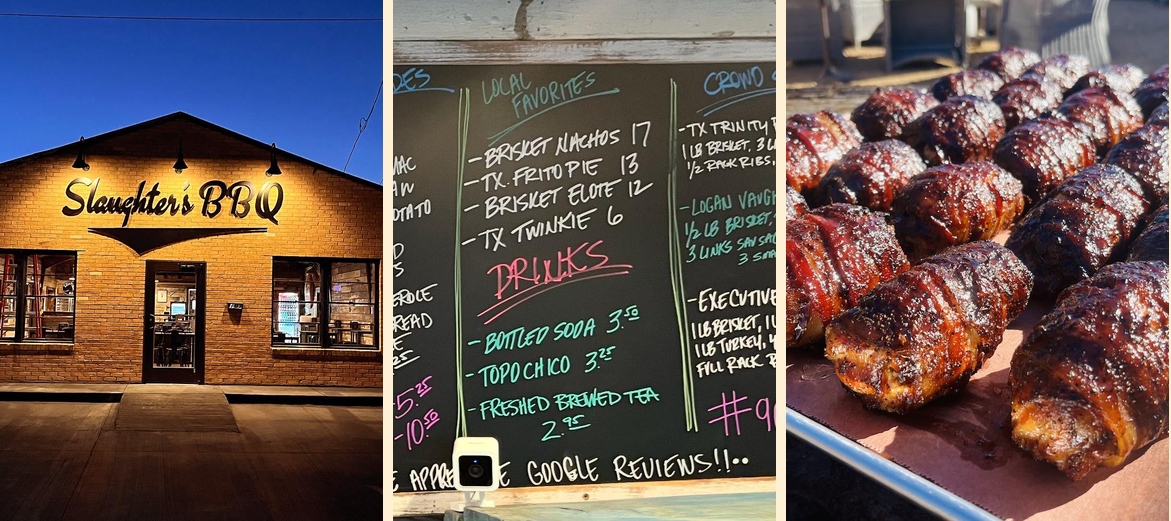 Slaughter's BBQ
DES
MAC
AW
OTATO
D
S
EROLE
READ
E
25
5.25
-10.50
LOCAL
FAVORITES
- BRISKET NACHOS 17
- TX. FRITO PIE 13
- BRISKET ELOTE 12
- TX TWINKIE 6
DRINKS
- BOTTLED SODA 3.50
- TOPO CHICO 3.25
- FRESHED BREWED TEA
2.95
CROWD
- TX TRINITY
1 LB BRISKET, 3 L
1/2 RACK RIBS,
- LOGAN VAUGH
1/2 LB BRISKET,
3 LINKS SAUSAG
3 SMA
- EXECUTIVE
1 LB BRISKET, 1 L
1 LB TURKEY,
FULL RACK
#9
E APPRE E GOOGLE REVIEWS!!..